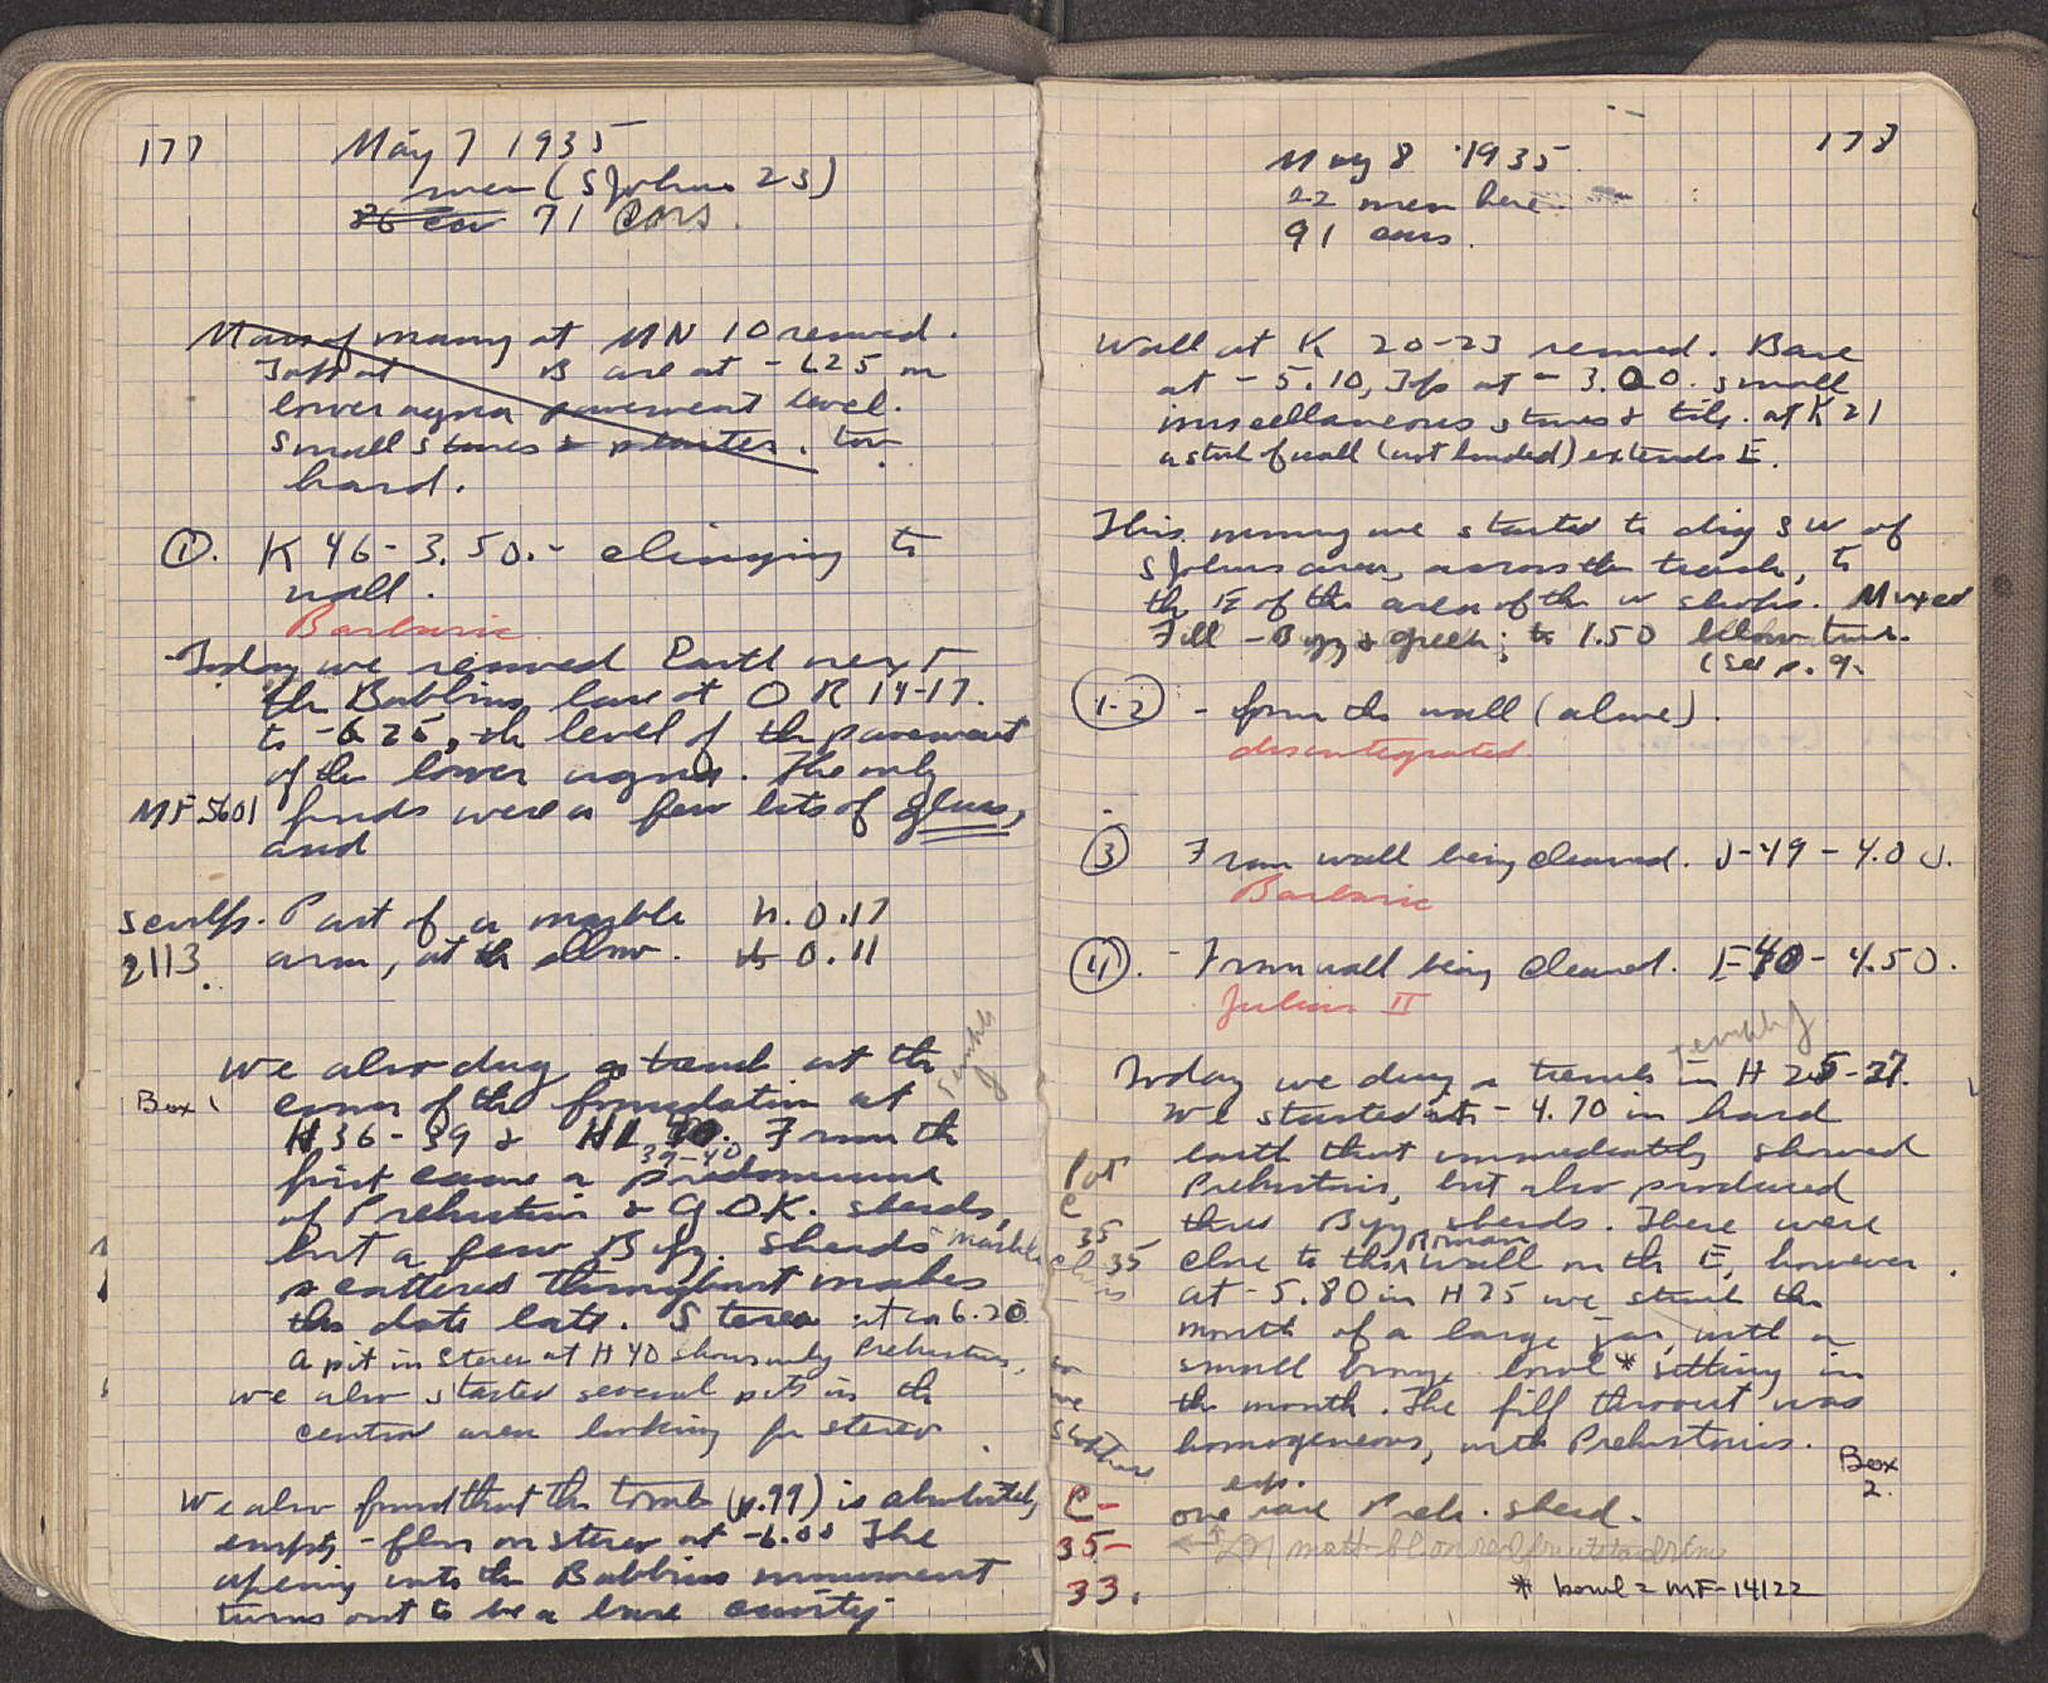 177
May 7 1935
men (S Johns 23)
86 car 71 cars.
Mass of masonry at MN 10 removed.
at B are at - 6.25 on
lower agora pavement level.
Small stones & plaster.
hard.
①. K 46 - 3.50. - clinging to
wall.
Barbaric
Today we removed Earth next
the Babbius base at O R 14-17.
to -6.25, the level of the pavement
of the lower agora. The only
MF 5601 finds were a few bits of glass,
and
Sculp. Part of a marble h. 0.17
2113. arm, at the elbow. th 0.11
We also dug a trench at the
Box 1 corner of the foundation at
H 36-39 & HI 39-40. From the
first came a predominance
of Prehistoric & G.O.K. sherds,
but a few Byz. sherds - marble
scattered throughout makes
the date late. Stereo at ca 6.20
a pit in stereo at H 40 shows only Prehistoric,
We also started several pits in the
central area looking for stereo.
We also found that the tomb (p.99) is absolutely
empty - floor on stereo at -6.00 The
opening into the Babbius monument
turns out to be a base cavity.
178
May 8 1935
22 men here.
91 cars.
Wall at K 20-23 removed. Base
at - 5.10, Top at - 3.00. small
miscellaneous stones & tile. at K 21
a stub of wall (not bonded) extends E.
This morning we started to dig SW of
S Johns area, across the trench, to
the E of the area of the W shops. Mixed
Fill - Byz & Greek; to 1.50 below turf.
(See p. 9.
1-2 - from the wall (above).
disintegrated
③ From wall being cleared. J-49 - 4.00.
Barbaric
④. - From wall being cleared. E-40 - 4.50.
Julian II
Today we dug a trench in H 25-27.
We started at - 4.70 in hard
earth that immediately showed
Prehistoric, but also produced
three Byz sherds. These were
close to the Roman wall on the E, however.
at - 5.80 in H 25 we struck the
mouth of a large jar, with a
small bronze bowl * sitting in
the mouth. The fill thruout was
homogeneous, with Prehistoric.
Box
2.
esp.
C- one rare Preh. sherd.
35-
33.
* bowl = MF-14122